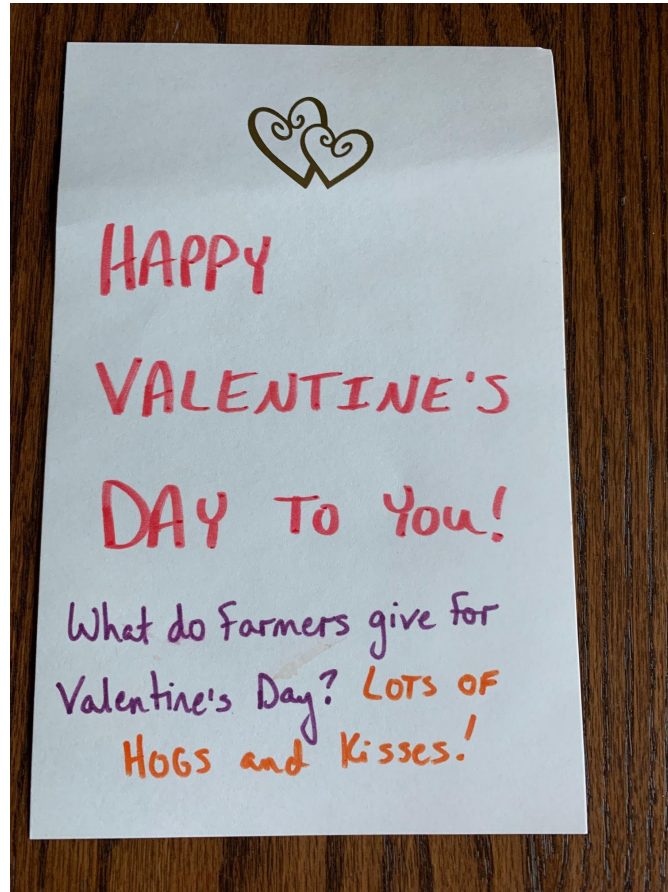 HAPPY
VALENTINE'S
DAY TO YOU!
What do Farmers give for
Valentine's Day? LOTS OF
HOGS and Kisses!